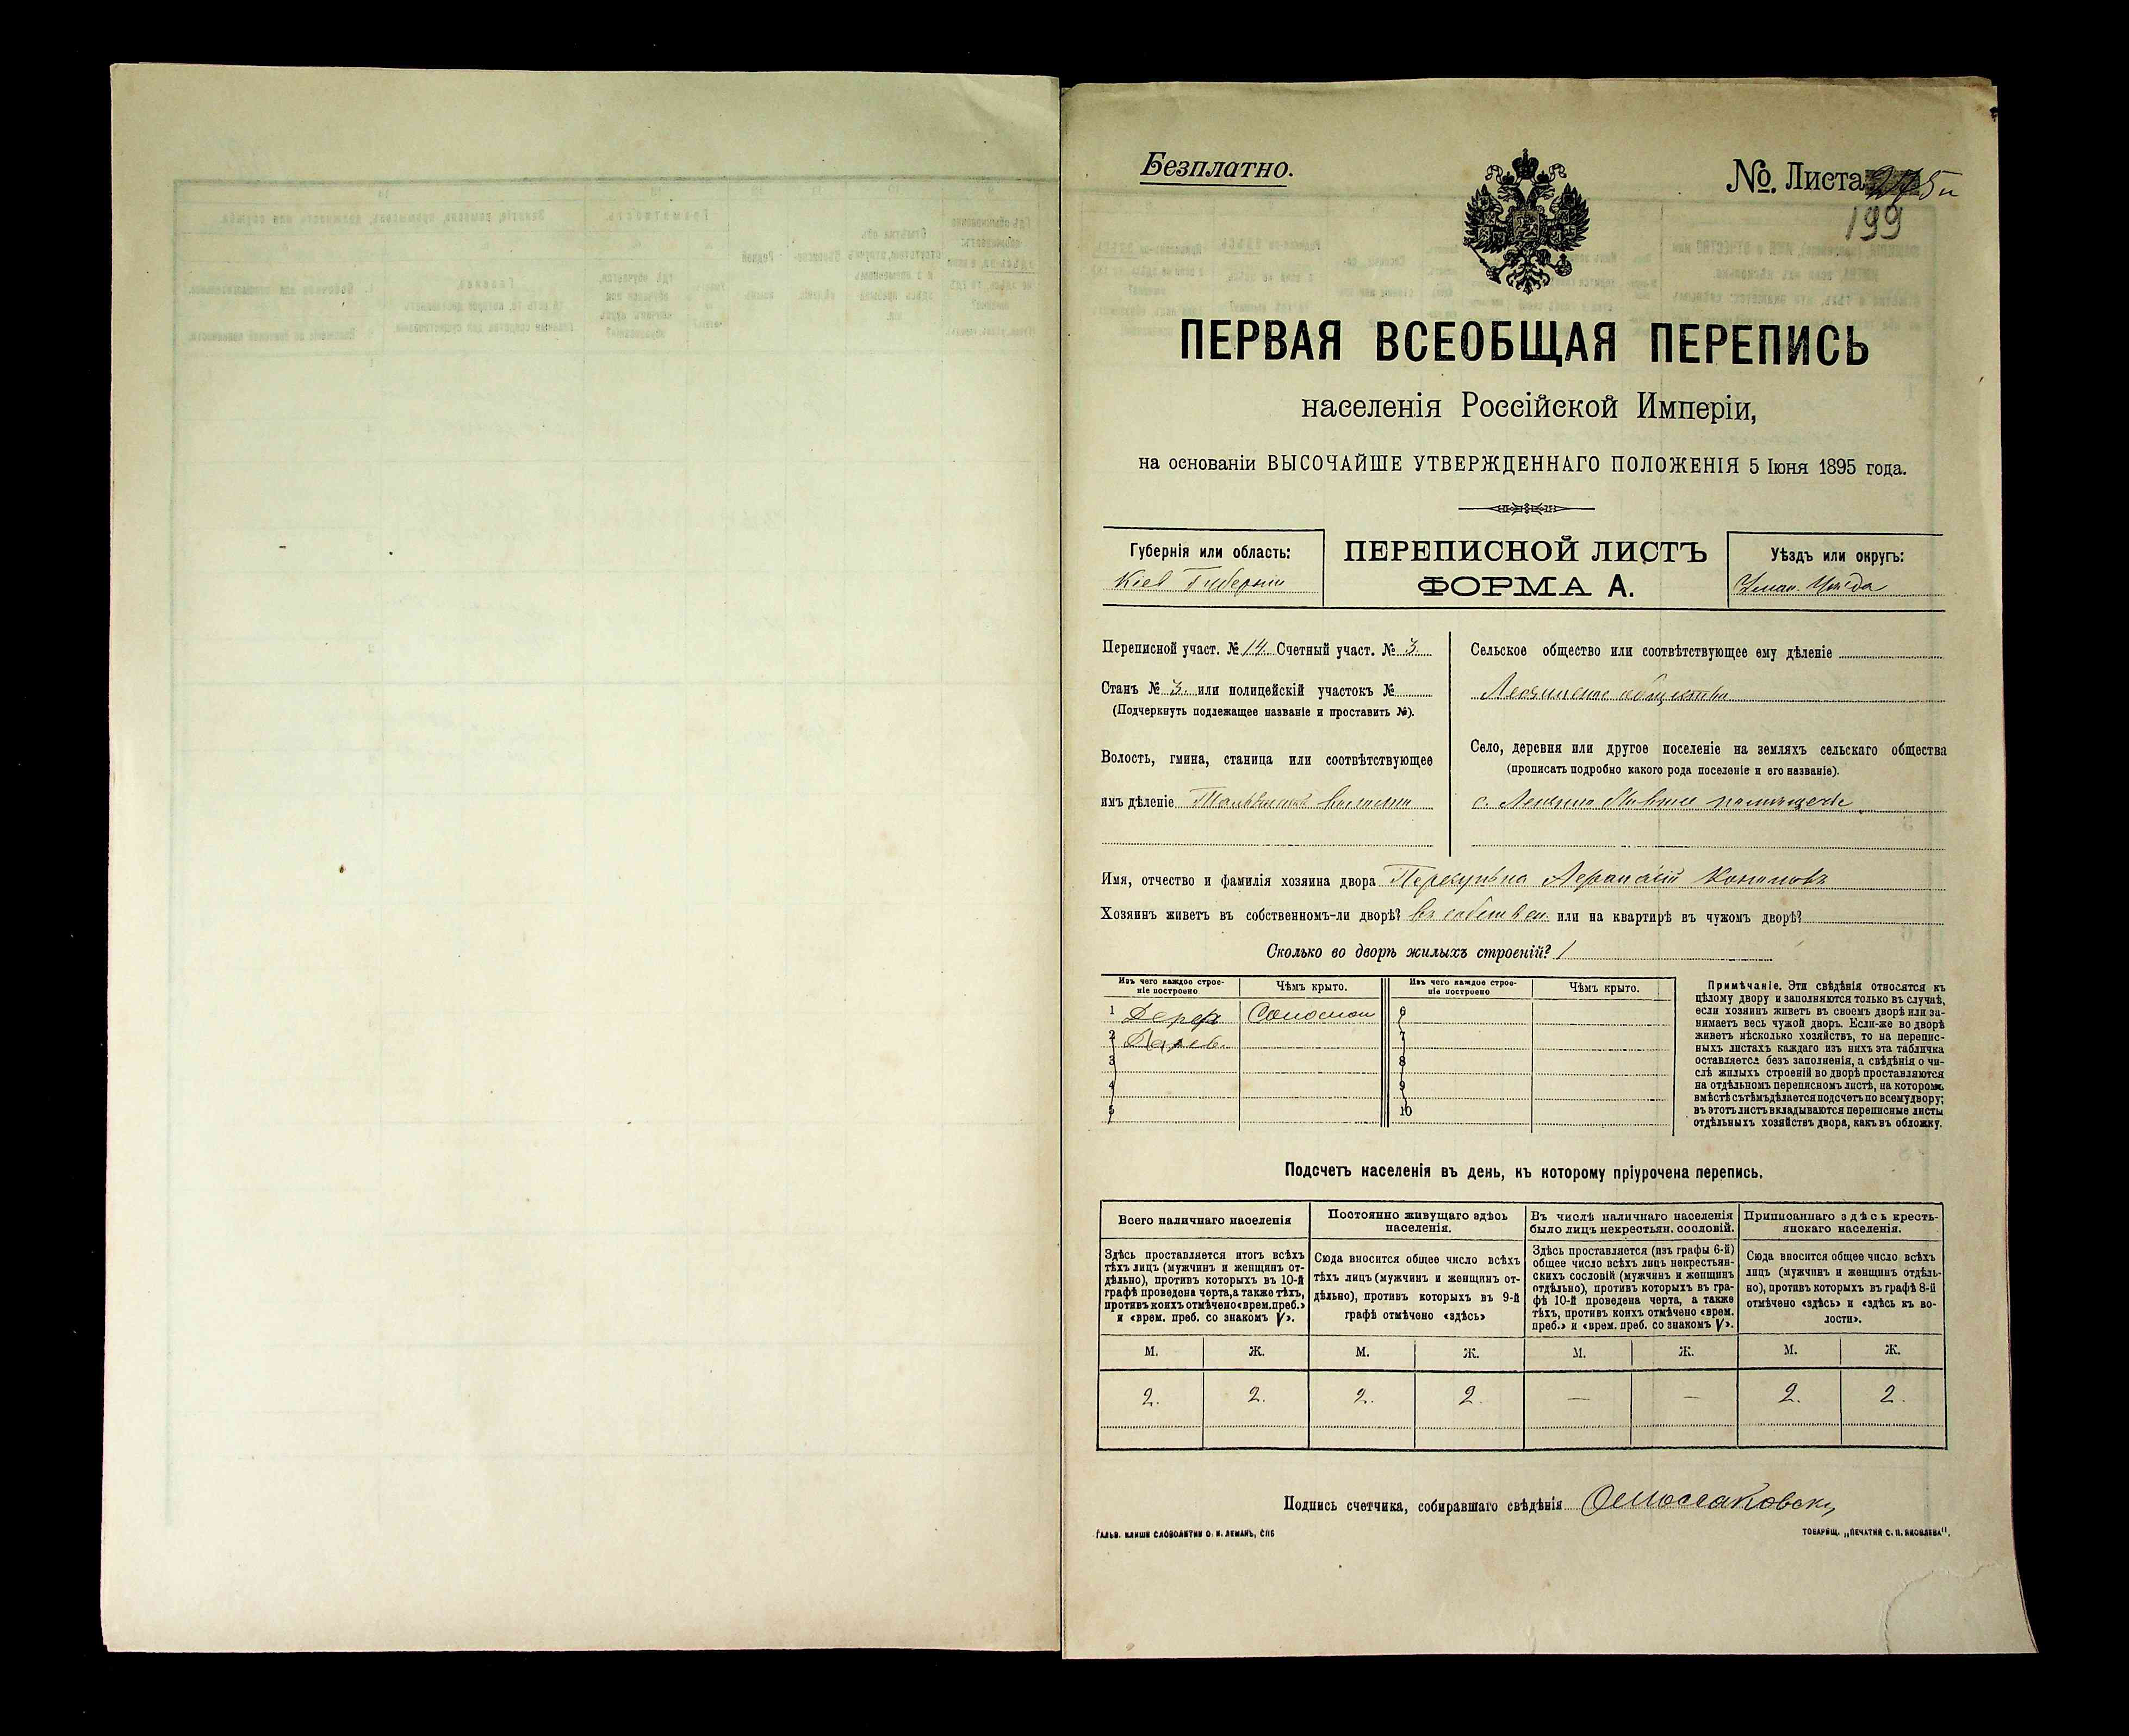 Безплатно.
№. Листа
199
ПЕРВАЯ ВСЕОБЩАЯ ПЕРЕПИСЬ
населенія Россійской Имперіи,
на основаніи ВЫСОЧАЙШЕ УТВЕРЖДЕННАГО ПОЛОЖЕНІЯ 5 Іюня 1895 года.
Губернія или область:
Кіев Губерніи
ПЕРЕПИСНОЙ ЛИСТЪ
ФОРМА А.
Уѣздъ или округъ:
Уман. Уѣзда
Переписной участ. № 14. Счетный участ. № 3.
Станъ № 3. или полицейскій участокъ №
(Подчеркнуть подлежащее названіе и проставить №).
Волость, гмина, станица или соотвѣтствующее
имъ дѣленіе волости
Сельское общество или соотвѣтствующее ему дѣленіе
общество
Село, деревня или другое поселеніе на земляхъ сельскаго общества
(прописать подробно какого рода поселеніе и его названіе).
с.
Имя, отчество и фамилія хозяина двора
Хозяинъ живетъ въ собственномъ-ли дворѣ? въ собствен. или на квартирѣ въ чужомъ дворѣ?
Сколько во дворѣ жилыхъ строеній? 1
Изъ чего каждое строе-
ніе построено
Чѣмъ крыто.
Изъ чего каждое строе-
ніе построено
Чѣмъ крыто.
1 Дерев Соломой 6
2 7
3 8
4 9
5 10
Примѣчаніе. Эти свѣдѣнія относятся къ
цѣлому двору и заполняются только въ случаѣ,
если хозяинъ живетъ въ своемъ дворѣ или за-
нимаетъ весь чужой дворъ. Если-же во дворѣ
живетъ нѣсколько хозяйствъ, то на перепис-
ныхъ листахъ каждаго изъ нихъ эта табличка
оставляется безъ заполненія, а свѣдѣнія о чи-
слѣ жилыхъ строеній во дворѣ проставляются
на отдѣльномъ переписномъ листѣ, на которомъ
вмѣстѣ съ тѣмъ дѣлается подсчетъ по всему двору;
въ этотъ листъ вкладываются переписные листы
отдѣльныхъ хозяйствъ двора, какъ въ обложку.
Подсчетъ населенія въ день, къ которому пріурочена перепись.
Всего наличнаго населенія
Здѣсь проставляется итогъ всѣхъ
тѣхъ лицъ (мужчинъ и женщинъ от-
дѣльно), противъ которыхъ въ 10-й
графѣ проведена черта, а также тѣхъ,
противъ коихъ отмѣчено «врем. преб.»
и «врем. преб. со знакомъ V».
Постоянно живущаго здѣсь
населенія.
Сюда вносится общее число всѣхъ
тѣхъ лицъ (мужчинъ и женщинъ от-
дѣльно), противъ которыхъ въ 9-й
графѣ отмѣчено «здѣсь»
Въ числѣ наличнаго населенія
было лицъ некрестьян. сословій.
Здѣсь проставляется (изъ графы 6-й)
общее число всѣхъ лицъ некрестьян-
скихъ сословій (мужчинъ и женщинъ
отдѣльно), противъ которыхъ въ гра-
фѣ 10-й проведена черта, а также
тѣхъ, противъ коихъ отмѣчено «врем.
преб.» и «врем. преб. со знакомъ V».
Приписаннаго здѣсь кресть-
янскаго населенія.
Сюда вносится общее число всѣхъ
лицъ (мужчинъ и женщинъ отдѣль-
но), противъ которыхъ въ графѣ 8-й
отмѣчено «здѣсь» и «здѣсь къ во-
лости».
М. Ж. М. Ж. М. Ж. М. Ж.
2. 2. 2. 2. — — 2. 2.
Подпись счетчика, собиравшаго свѣдѣнія
ГАЛЬВ. КЛИШИ СЛОВОЛИТНИ О. И. ЛЕМАНЪ, СПБ
ТОВАРИЩ. „ПЕЧАТНЯ С. П. ЯКОВЛЕВА".